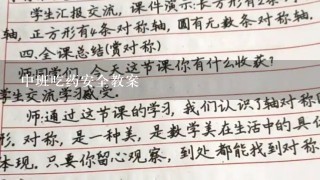 学生汇报交流,课件演示:长方形有2条
轴,正方形有4条对称轴,圆有无数条对称轴.
四.全课总结(赏对称)
今天这节课你有什么收获?
中班吃药安全教案
学生交流学习感受.
师:通过这节课的学习,我们认识了轴对称
形.对称,是一种美,是数学美在生活中的具
体现.只要你留心观察,到处都能找到对称